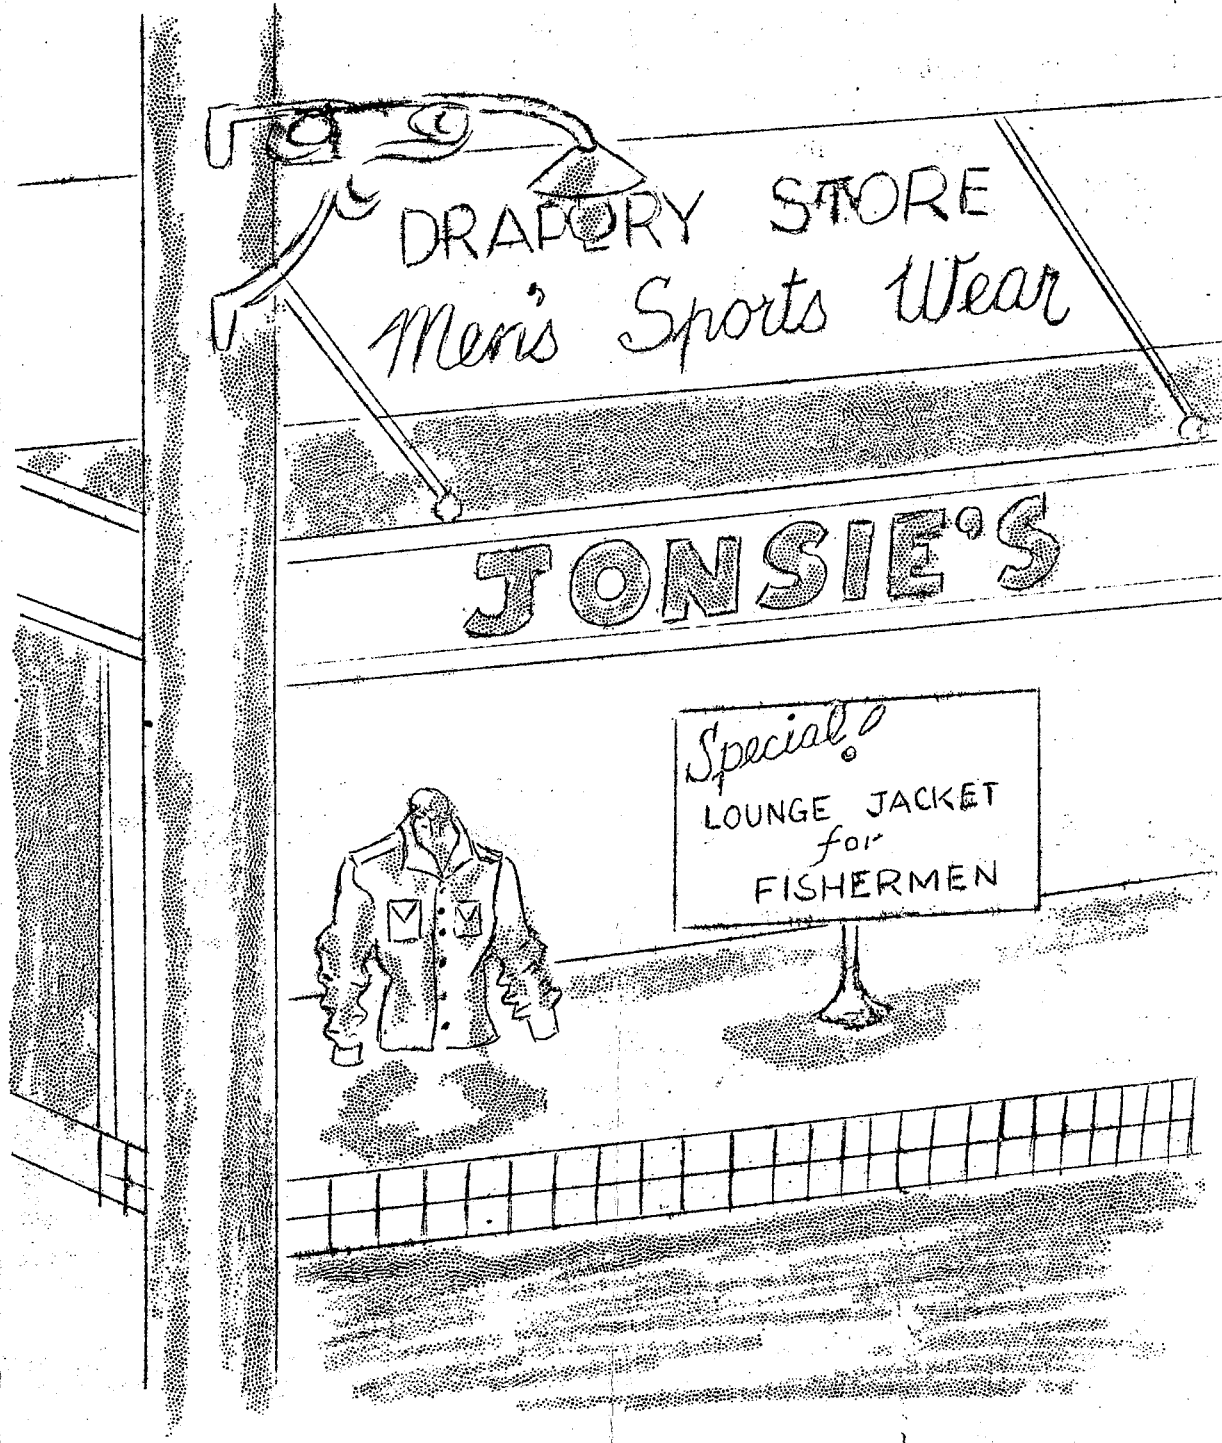 DRAPERY STORE
Men's Sports Wear
JONSIE'S
Special!
LOUNGE JACKET
for
FISHERMEN